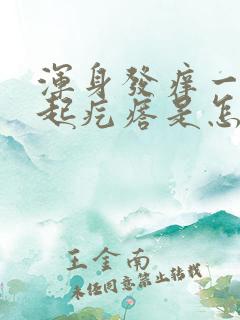 渾身發痒一
起疙瘩是怎
王金南
未經同意禁止轉載